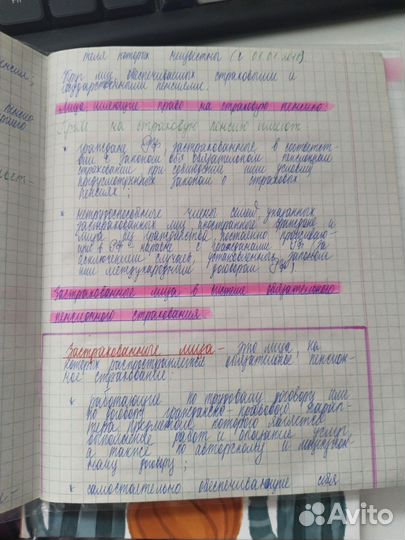 тели которых неизвестны (с 01.01.2018)
Круг лиц, обеспечиваемых страховыми и
государственными пенсиями.
Лица имеющие право на страховую пенсию
Право на страховую пенсию имеют
* граждане РФ застрахованные в соответст-
вии с Законом об обязательном пенсионном
страховании при соблюдении ими условий
предусмотренных Законом о страховых
пенсиях;
* нетрудоспособные члены семей указанных
застрахованных лиц, иностранные граждане и
лица без гражданства, постоянно проживаю-
щие в РФ наравне с гражданами РФ (за
исключением случаев, установленных законом
или международным договором РФ)
Застрахованные лица в системе обязательного
пенсионного страхования
Застрахованные лица - это лица, на
которых распространяется обязательное пенсион-
ное страхование:
* работающие по трудовому договору или
по договору гражданско-правового харак-
тера предметом которого является
выполнение работ и оказание услуг,
а также по авторскому и лицензион-
ному договору;
* самостоятельно обеспечивающие себя
Avito